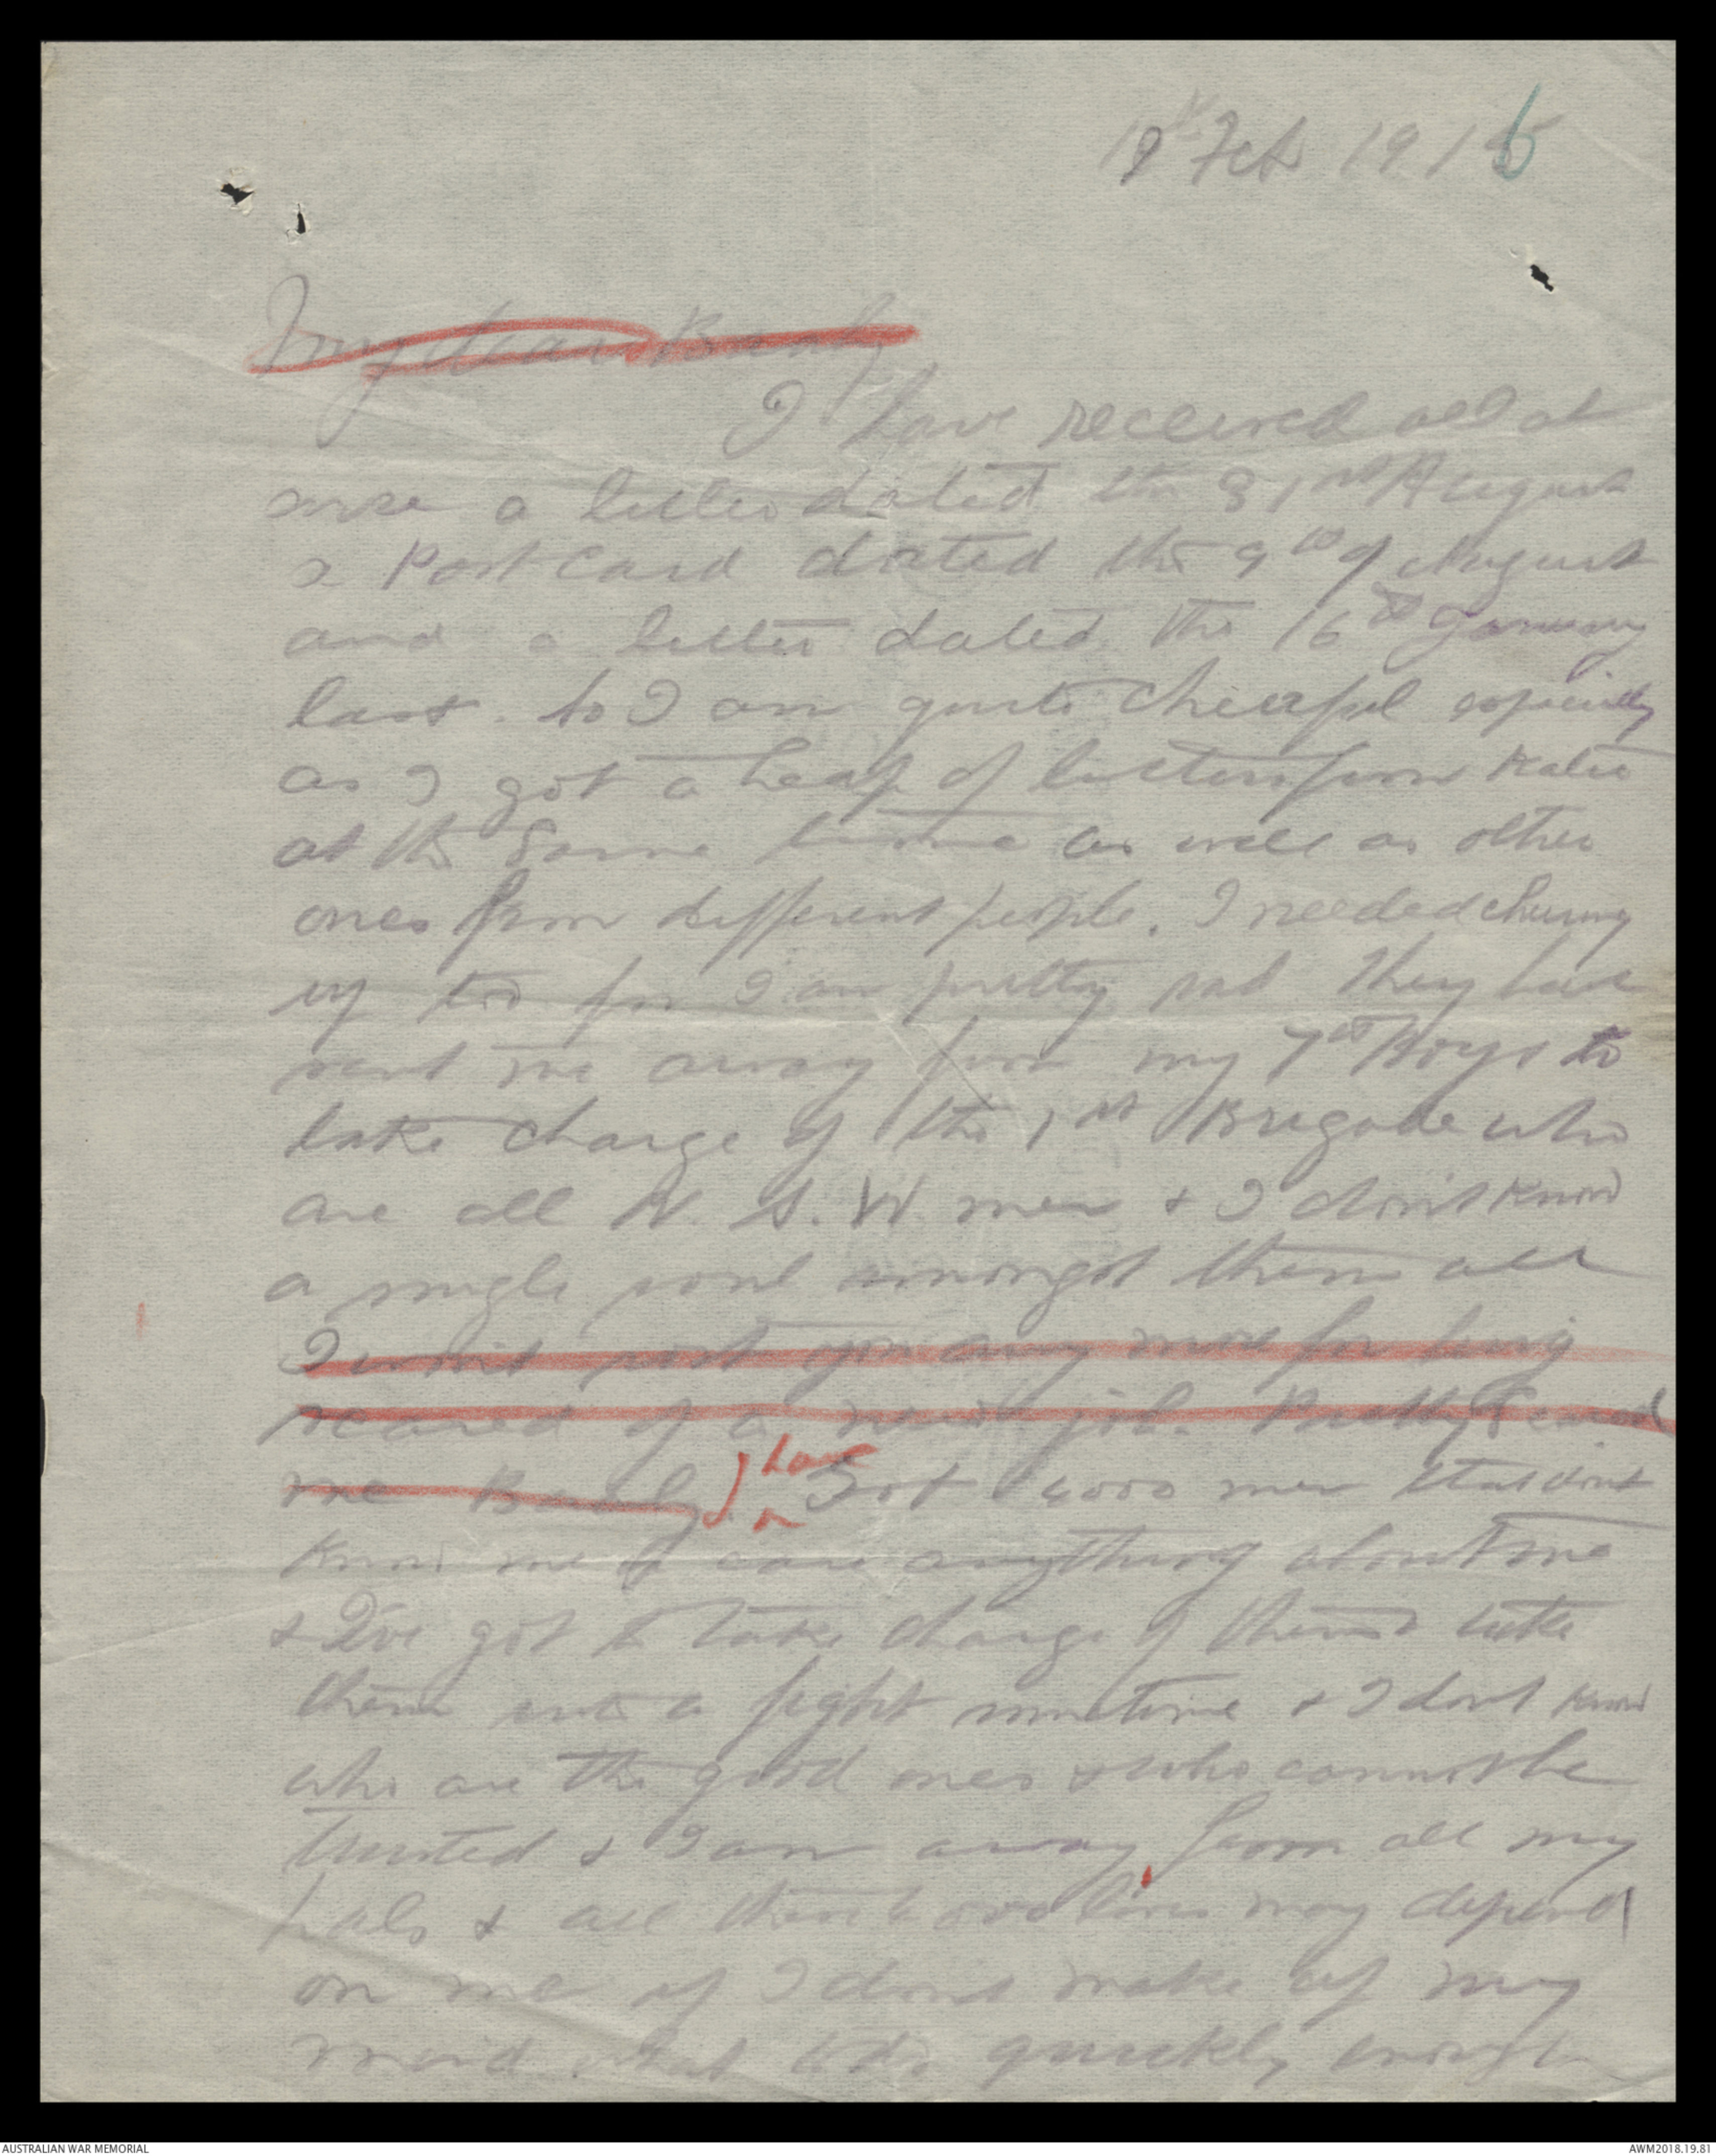 19th Feb 1916
My dear Bently
I have received all at
once a letter dated the 31st August
a Post Card dated the 9th of August
and a letter dated the 16th January
last. So I am quite cheerful especially
as I got a heap of letters from Katie
at the same time as well as other
ones from different people. I needed cheering
up too for I am pretty sad they have
sent me away from my 7th Boys to
take charge of the 1st Brigade who
are all N. S. W. men & I don't know
a single soul amongst them all
I won't you any more for being
scared of a new job. Pretty scared
me I have
Got 4000 men that dont
know me or care anything about me
& I've got to take charge of them & take
them into a fight sometime & I dont know
who are the good ones & who cannot be
trusted & I am away from all my
pals & all these 4000 lives may depend
on me if I dont make up my
mind what to do quickly enough
AUSTRALIAN WAR MEMORIAL
AWM2018.19.81